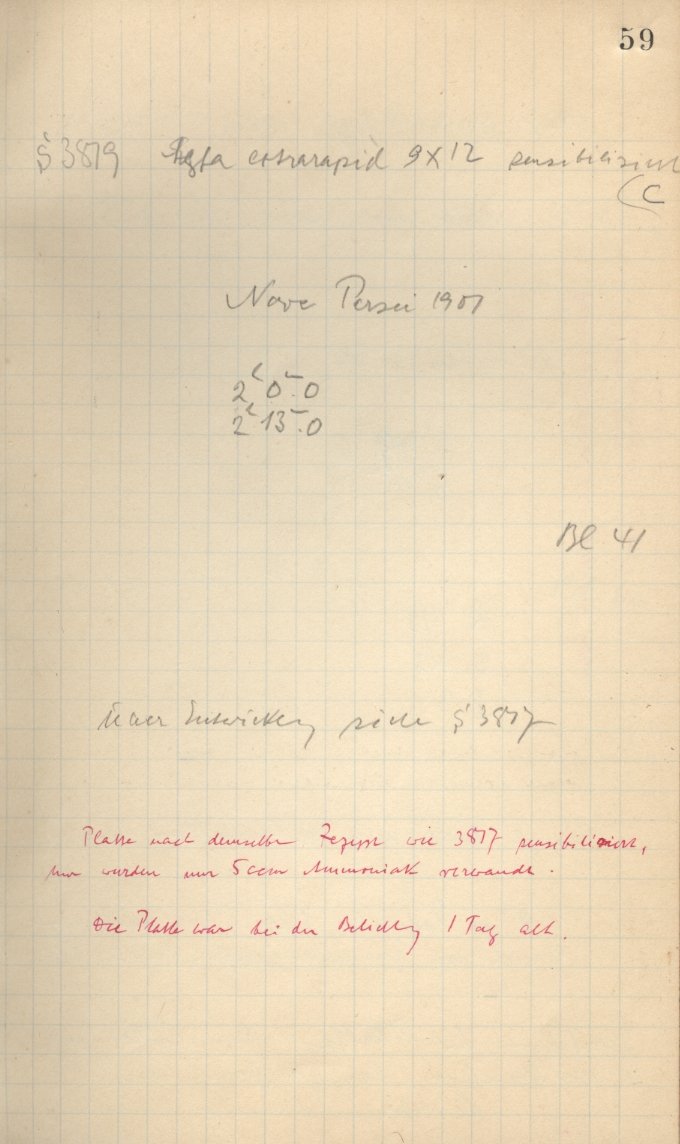 59
S 3819 Agfa extrarapid 9X12 sensibilisiert
(C
Nova Persei 1901
2h 0m.0
2h 13m.0
Bl 41
Über Entwicklung siehe S 3817
Platte nach demselben Rezept wie 3817 sensibilisiert,
nur wurden nur 5 ccm Ammoniak verwandt.
Die Platte war bei der Belichtung 1 Tag alt.